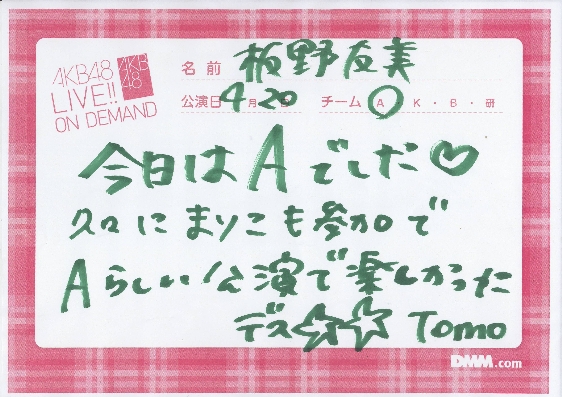 AKB48
LIVE!!
ON DEMAND
AKB
48
名前 板野友美
公演日 4月20日 チーム A・K・B・研
今日はAでした♡
久々にまりこも参加で
Aらしい公演で楽しかった
デス☆☆ Tomo
DMM.com